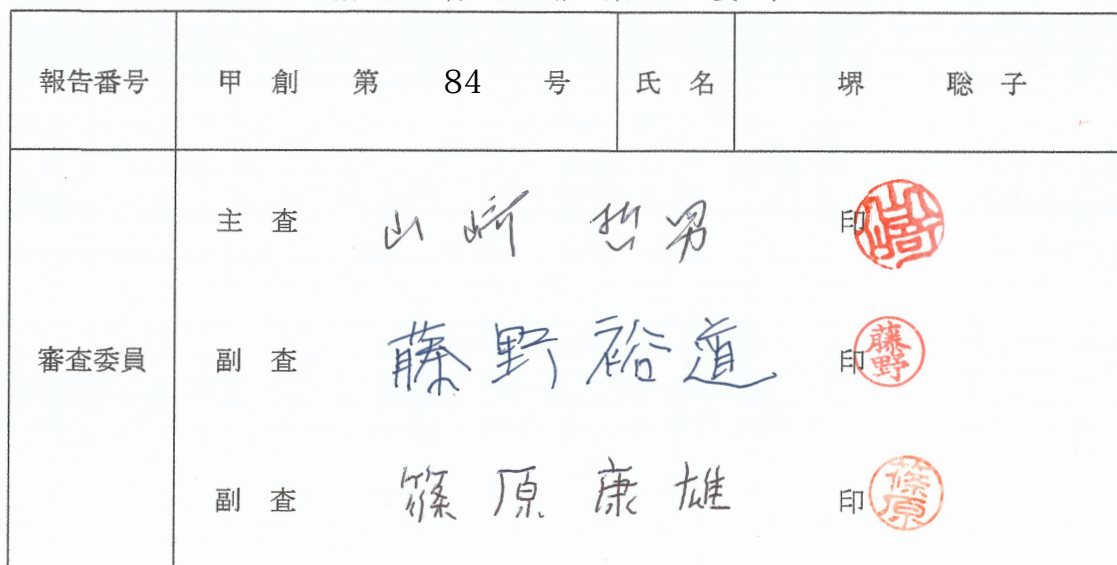 報告番号 甲 創 第 84 号 氏 名 堺 聡 子
審査委員
主 査 山 﨑 哲 男 印 山﨑
副 査 藤 野 裕 道 印 藤野
副 査 篠 原 康 雄 印 篠原